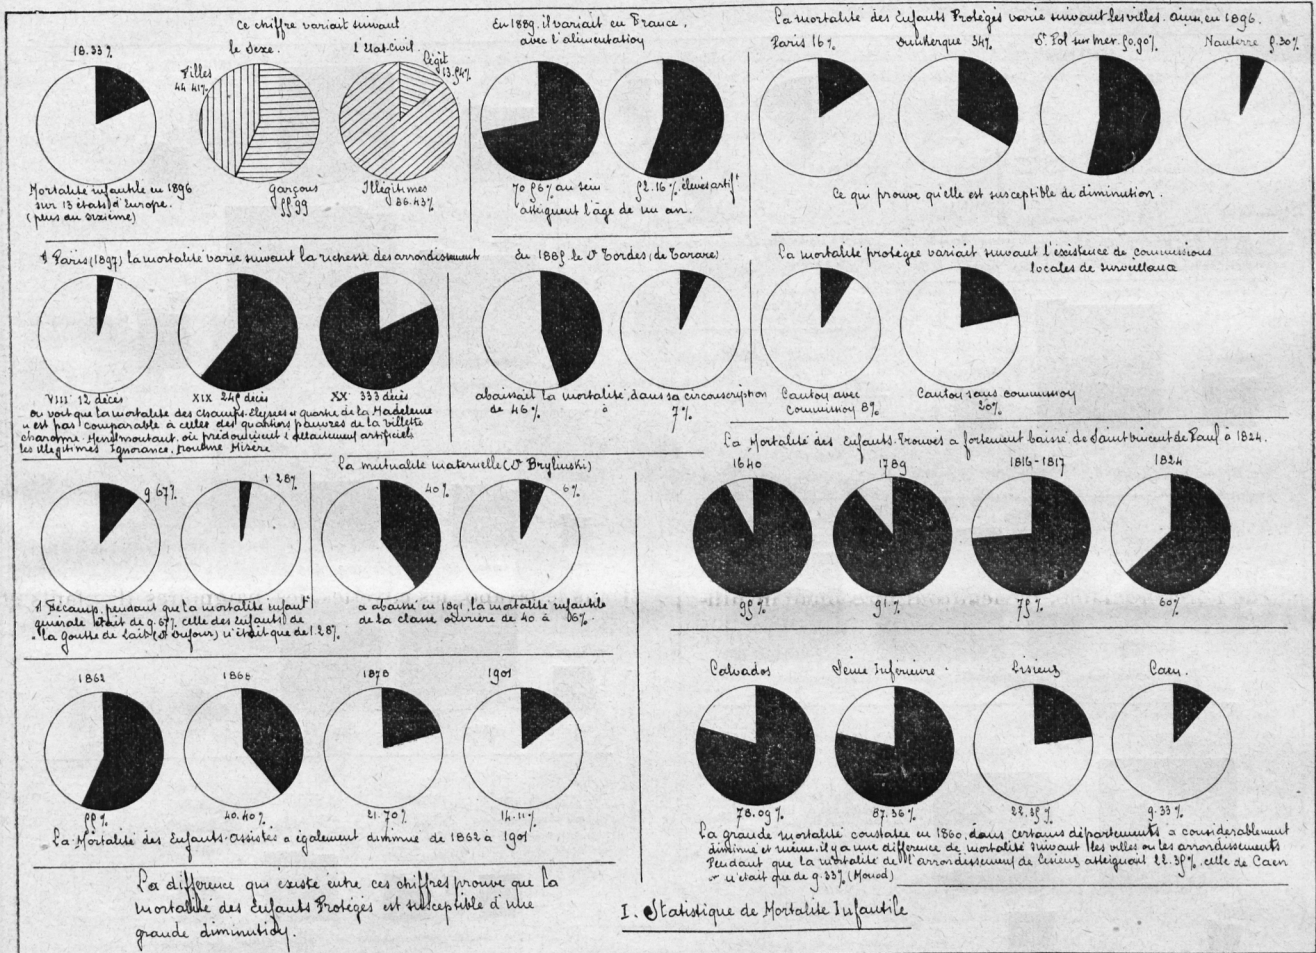 18.33%
Mortalité infantile en 1896
sur 13 états d'Europe.
(plus du sixième)
Ce chiffre variait suivant
le Sexe.
l'Etat-Civil.
Filles
44 41%
Garçons
55 99
Légit
13.54%
Illégitimes
86.43%
En 1889, il variait en France,
avec l'alimentation
70 56% au sein
52.16% élevés artif.t
atteignent l'âge de un an.
La mortalité des Enfants Protégés varie suivant les villes. Ainsi, en 1896.
Paris 16%
Dunkerque 34%
St Pol sur Mer. 50,90%
Nanterre 5.30%
Ce qui prouve qu'elle est susceptible de diminution.
A Paris (1897) la mortalité varie suivant la richesse des arrondissements
VIII 12 décès
XIX 245 décès
XX 333 décès
on voit que la mortalité des Champs-Elysées & quartier de la Madeleine
n'est pas comparable à celles des quartiers pauvres de la Villette
Charonne. Menilmontant, où prédominent l'allaitement artificiel
les illégitimes Ignorance. Routine Misère
En 1885 le Dr Tordes (de Tarare)
abaissait la mortalité, dans sa circonscription
de 46% à 7%
La mortalité protégée variait suivant l'existence de commissions
locales de surveillance
Canton avec
Commission 8%
Canton sans commission
20%
9 67%
1 28%
A Fécamp, pendant que la mortalité infant.
générale était de 9.67% celle des Enfants de
"la Goutte de Lait (Dr Dufour) n'était que de 1.28%
La mutualité maternelle (Dr Brylinski)
40%
6%
a abaissé en 1891, la mortalité infantile
de la classe ouvrière de 40 à 06%
La Mortalité des Enfants-Trouvés a fortement baissé de Saint Vincent de Paul à 1824.
1640
1789
1816-1817
1824
95%
91.%
75%
60%
1862
1866
1878
1901
55%
40.40%
21.70%
14.11%
La Mortalité des Enfants-Assistés a également diminué de 1862 à 1901
Calvados
Seine Inférieure.
Lisieux
Caen.
78.09%
87.36%
22.35%
9.33%
La grande mortalité constatée en 1860, dans certains départements a considérablement
diminué et même, il y a une différence de mortalité suivant les villes ou les arrondissements
Pendant que la mortalité de l'arrondissement de Lisieux atteignait 22.35%, celle de Caen
n'était que de 9.33% (Monod)
La différence qui existe entre ces chiffres prouve que la
mortalité des Enfants Protégés est susceptible d'une
grande diminution.
I. Statistique de Mortalité Infantile